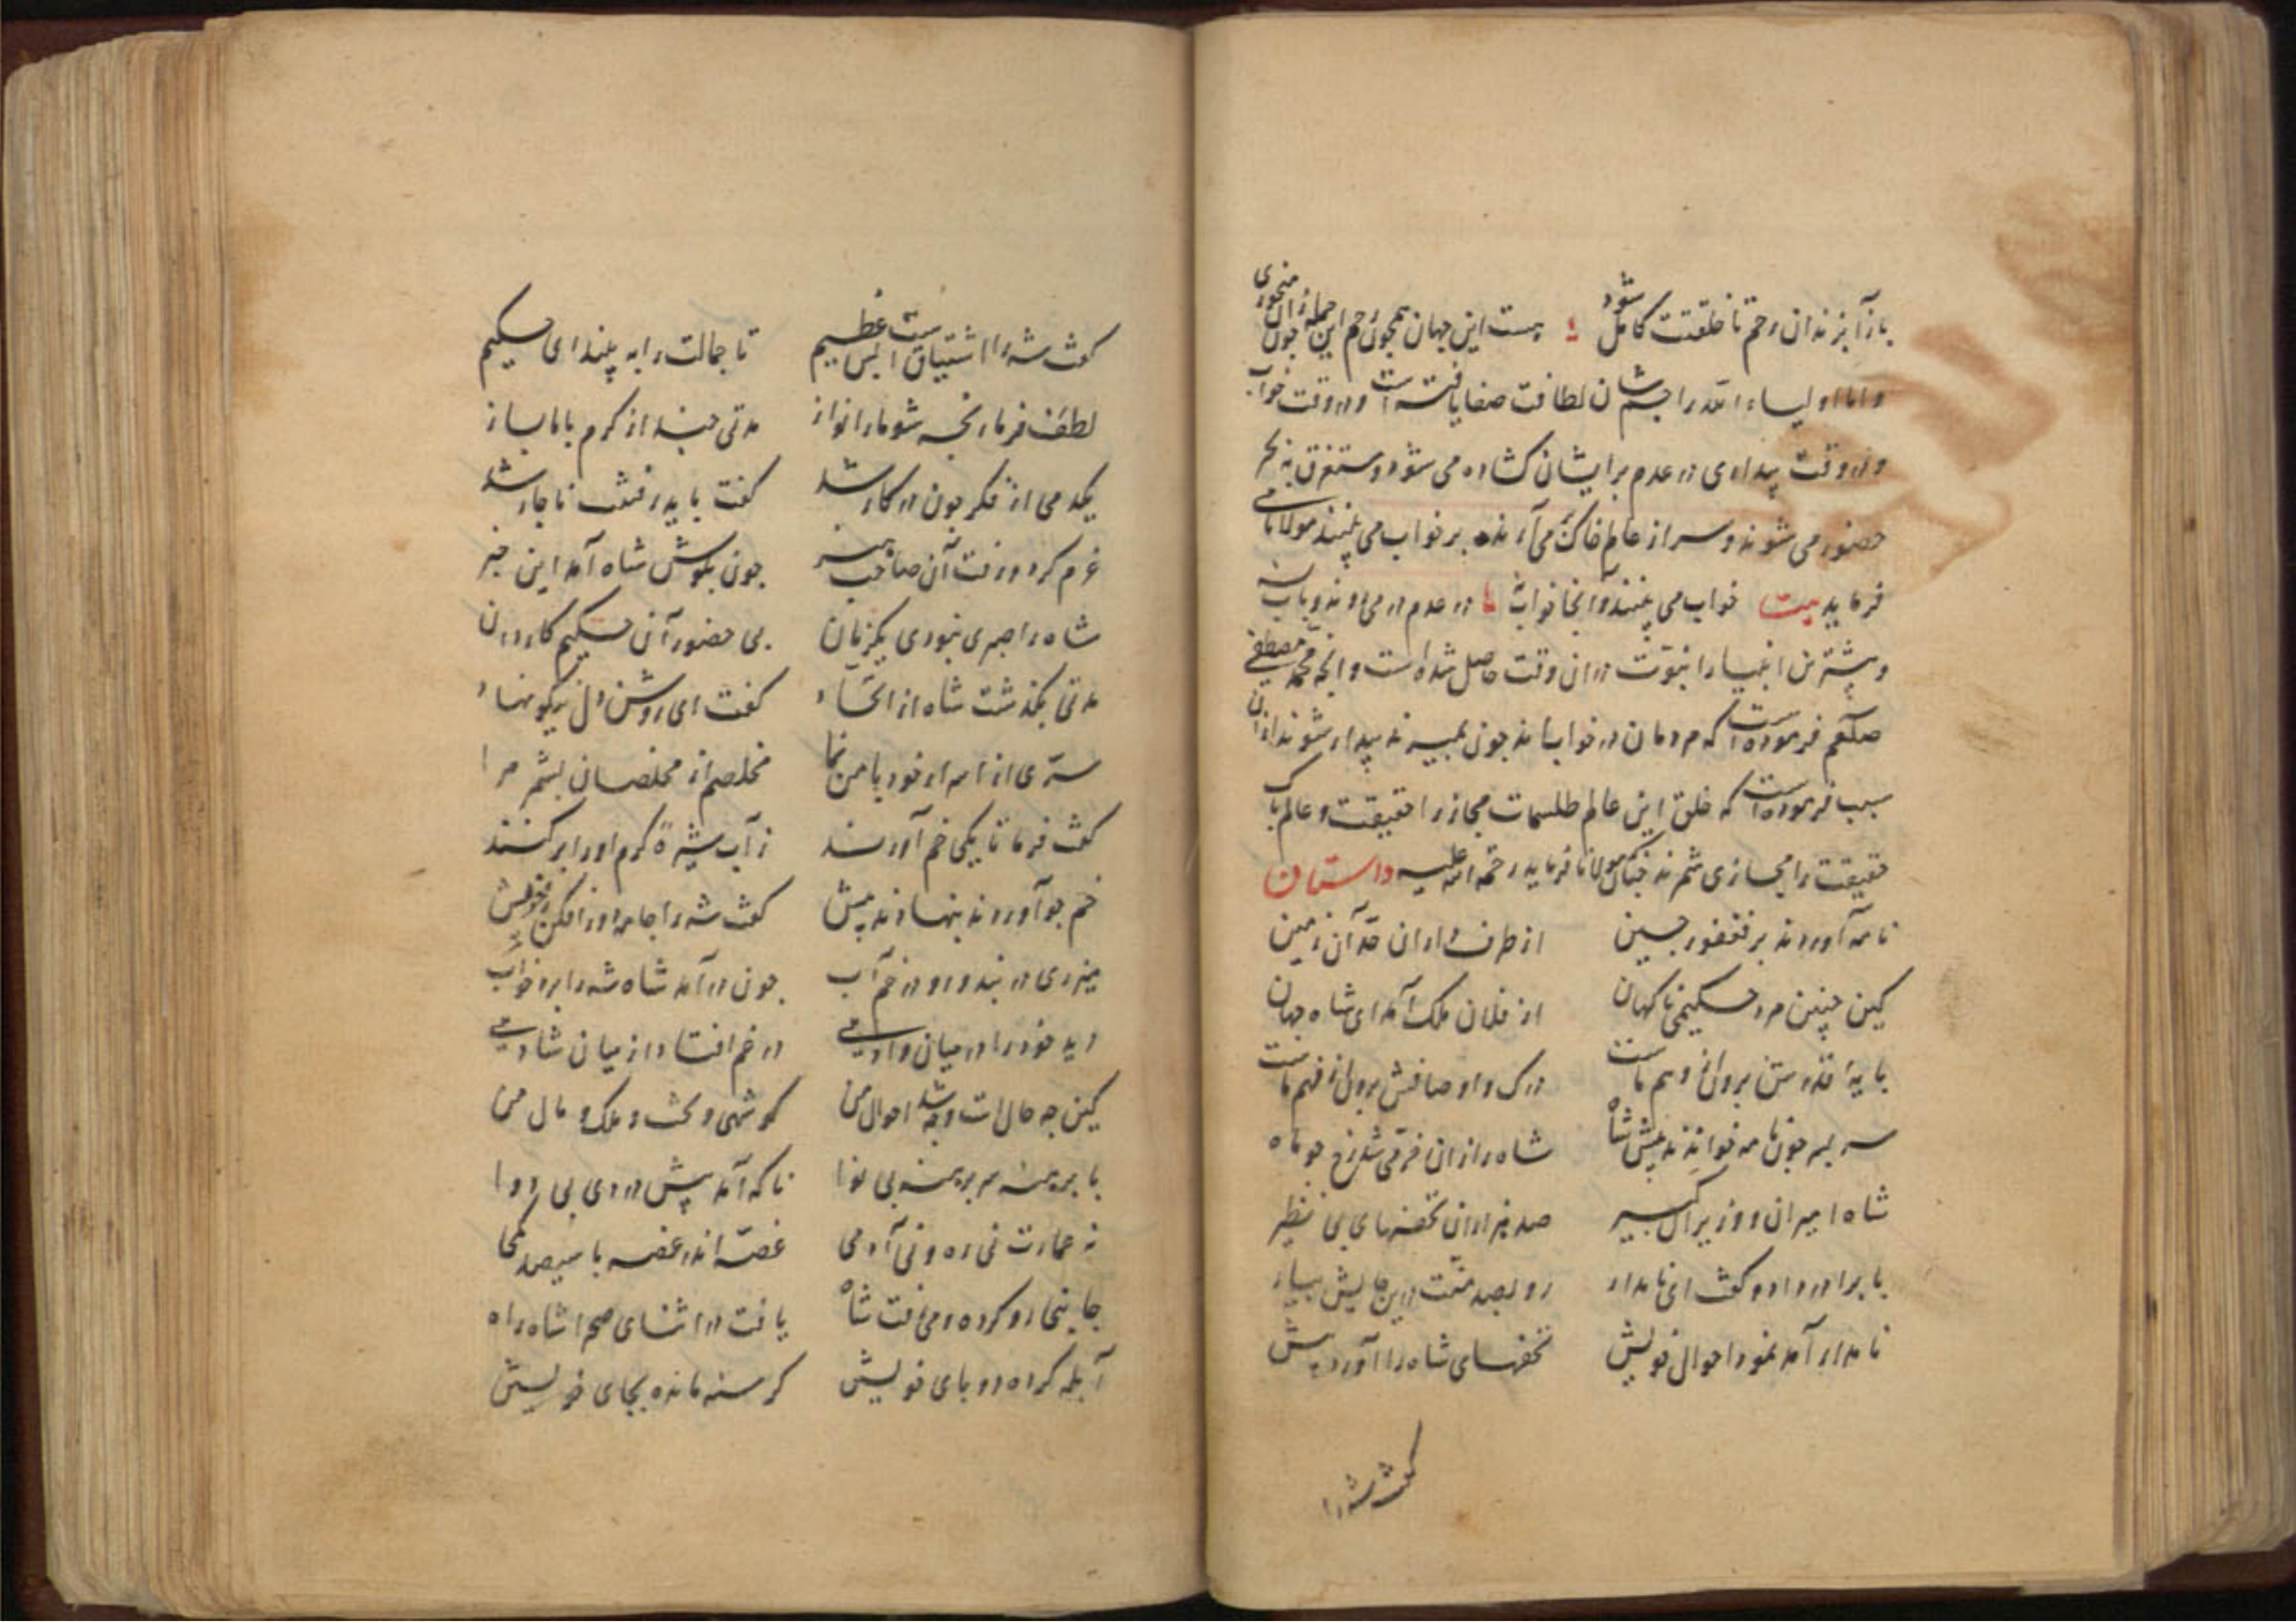 باز آیزندان رحم تا خلقتت کامل شود هست این جهان همچون رحم این جمله زان چون
و اما اولیاء الله را جسمشان لطافت صفا یافته است و در وقت خواب
و در وقت بیداری در عدم برایشان کشاده می شود و مستغرق به بحر
حضور می شوند و سر از عالم خاک می آرند بر خواب می بینند مولانا می
فرماید بیت خواب می بینند و آنجا خواب در عدم در می روند و باب
و بیشترین انبیا را نبوّت در ان وقت حاصل شده است و انچه محمد مصطفی
صلعم فرموده است که مردمان در خواب اند چون بمیرند بیدار شوند ازان
سبب فرموده است که خلق این عالم طلسمات مجاز را حقیقت و عالم پاک
حقیقت را مجازی شمرند چنانک مولانا فرماید رحمة الله علیه داستان
نامه آوردند بر فغفور چین از طرف داران حدّ آن زمین
کین چنین مرد حکیمی ناکهان از فلان ملک آمد ای شاه جهان
پایهٔ قدرش برون از وهم ماست درک و اوصافش برون از فهم ماست
سر بسر چون نامه خواندند پیش شاه شاه را زان فرّهی شد رخ چو ماه
شاه امیران و وزیران کبیر صد هزاران تحفهای بی نظیر
با برادر داد و کفت ای نامدار رو بصد منّت درین جایش بیار
نامدار آمد نمود احوال خویش تحفهای شاه را آورد پیش
کفت شه را
کفت شه را اشتیاق است بس عظیم تا جمالت را به بیند ای حکیم
لطف فرما رنجه شو ما را نواز مدتی چند از کرم با ما بساز
یکدمی از فکر چون در کار شد کفت باید رفتنت ناچار شد
عزم کرد و رفت آن صاحب هنر چون بکوش شاه آمد این خبر
شاه را صبری نبودی یکزمان بی حضور آن حکیم کاردان
مدتی بکذشت شاه از اتحاد کفت ای روشن دل نیکو نهاد
سرّی از اسرار خود با من نما مخلصم از مخلصان بشمر مرا
کفت فرما تا یکی خم آورند ز آب شیر کرم او را پر کنند
خم چو آوردند بنهادند پیش کفت شه را جامه دور افکن ز خویش
میزری در بند و رو در خم آب چون در آمد شاه شه را برد خواب
دید خود را در میان وادیی در خم افتاد از میان شادیی
کین چه حال است و چه شد احوال من کو شهی و تخت و ملک و مال من
پا برهنه سر برهنه بی نوا ناکه آمد پیش دردی بی دوا
نه عمارت نی ره و نی آدمی غصّه اندر غصه با سیصد غمی
جانبی رو کرده و می رفت شاه یافت در اثنای صحرا شاه راه
آبله کرده دو پای خویش کرسنه مانده بجای خویش